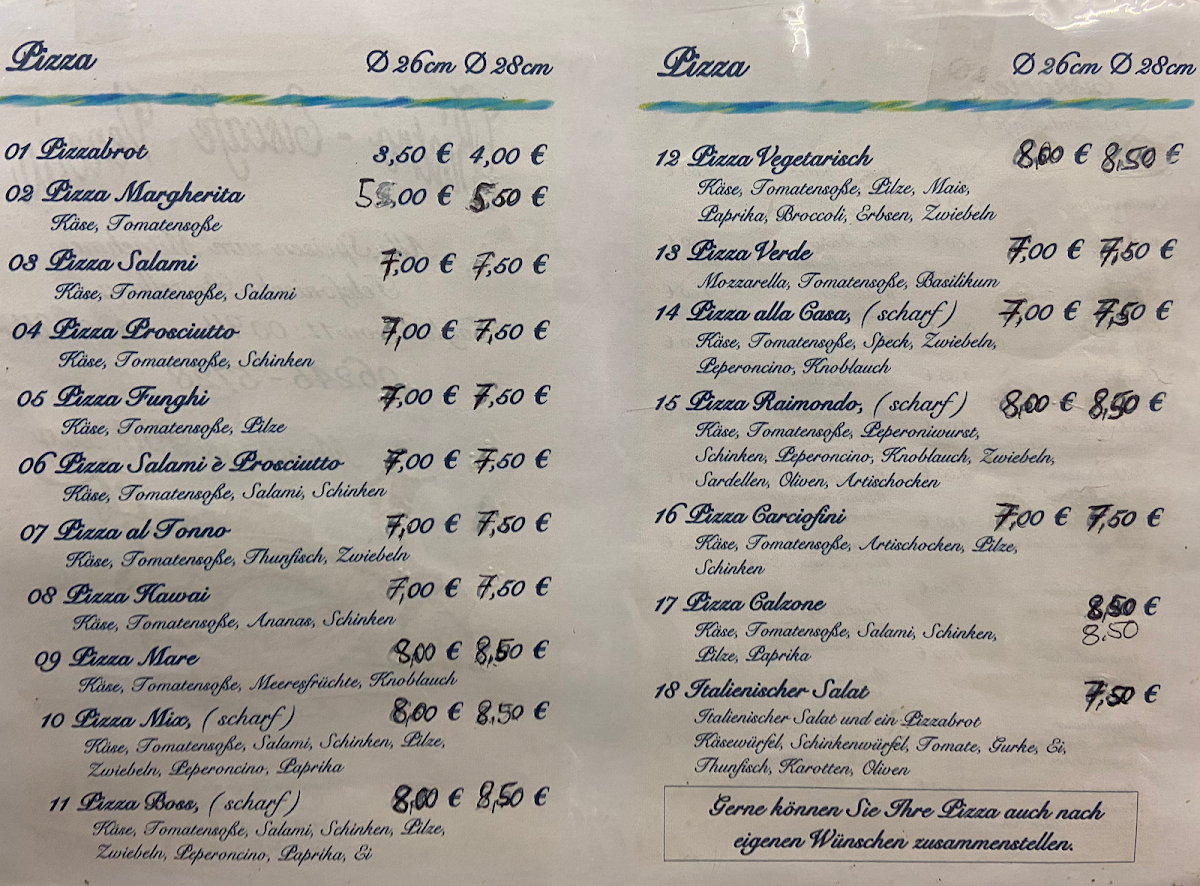 Pizza Ø 26cm Ø 28cm
01 Pizzabrot 3,50 € 4,00 €
02 Pizza Margherita 5,00 € 5,50 €
Käse, Tomatensoße
03 Pizza Salami 7,00 € 7,50 €
Käse, Tomatensoße, Salami
04 Pizza Prosciutto 7,00 € 7,50 €
Käse, Tomatensoße, Schinken
05 Pizza Funghi 7,00 € 7,50 €
Käse, Tomatensoße, Pilze
06 Pizza Salami è Prosciutto 7,00 € 7,50 €
Käse, Tomatensoße, Salami, Schinken
07 Pizza al Tonno 7,00 € 7,50 €
Käse, Tomatensoße, Thunfisch, Zwiebeln
08 Pizza Hawai 7,00 € 7,50 €
Käse, Tomatensoße, Ananas, Schinken
09 Pizza Mare 8,00 € 8,50 €
Käse, Tomatensoße, Meeresfrüchte, Knoblauch
10 Pizza Mix, (scharf) 8,00 € 8,50 €
Käse, Tomatensoße, Salami, Schinken, Pilze,
Zwiebeln, Peperoncino, Paprika
11 Pizza Boss, (scharf) 8,00 € 8,50 €
Käse, Tomatensoße, Salami, Schinken, Pilze,
Zwiebeln, Peperoncino, Paprika, Ei
Pizza Ø 26cm Ø 28cm
12 Pizza Vegetarisch 8,00 € 8,50 €
Käse, Tomatensoße, Pilze, Mais,
Paprika, Broccoli, Erbsen, Zwiebeln
13 Pizza Verde 7,00 € 7,50 €
Mozzarella, Tomatensoße, Basilikum
14 Pizza alla Casa, (scharf) 7,00 € 7,50 €
Käse, Tomatensoße, Speck, Zwiebeln,
Peperoncino, Knoblauch
15 Pizza Raimondo, (scharf) 8,00 € 8,50 €
Käse, Tomatensoße, Peperoniwurst,
Schinken, Peperoncino, Knoblauch, Zwiebeln,
Sardellen, Oliven, Artischocken
16 Pizza Carciofini 7,00 € 7,50 €
Käse, Tomatensoße, Artischocken, Pilze,
Schinken
17 Pizza Calzone 8,50 €
8,50
Käse, Tomatensoße, Salami, Schinken,
Pilze, Paprika
18 Italienischer Salat 7,50 €
Italienischer Salat und ein Pizzabrot
Käsewürfel, Schinkenwürfel, Tomate, Gurke, Ei,
Thunfisch, Karotten, Oliven
Gerne können Sie Ihre Pizza auch nach
eigenen Wünschen zusammenstellen.